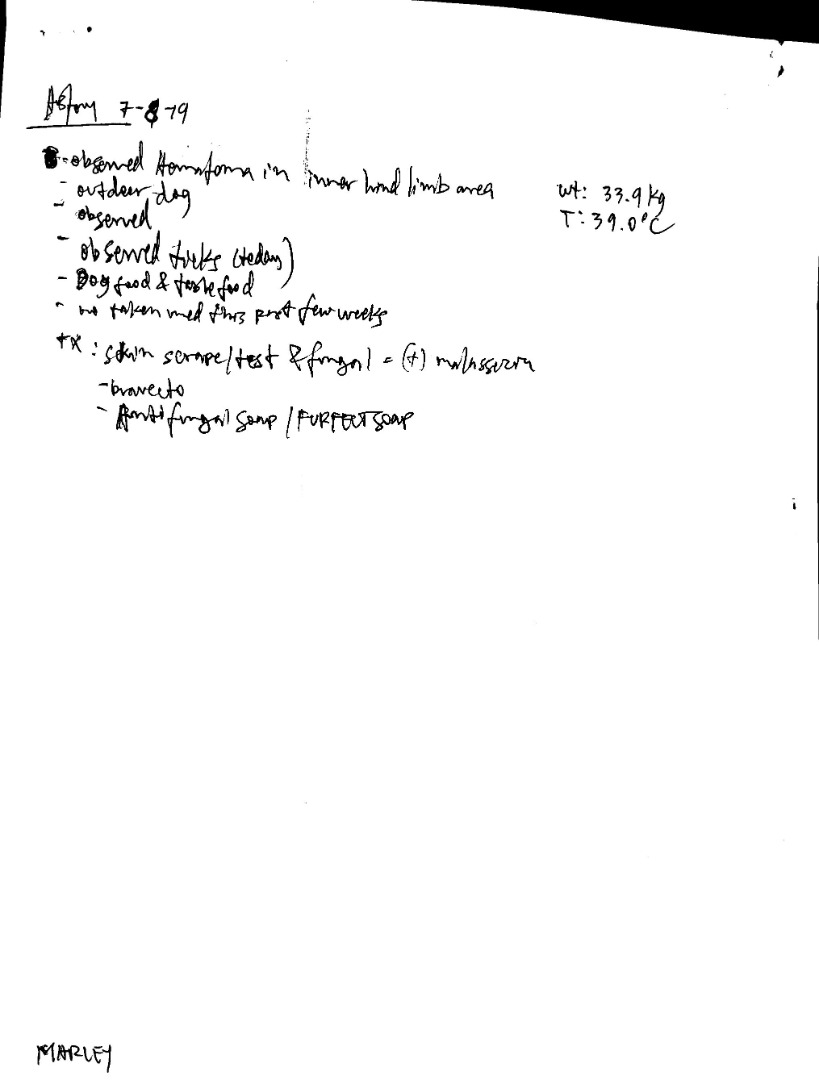 History 7-8-19
- observed Hematoma in inner hind limb area
- outdoor dog
- observed
- observed ticks (today)
- Dog food & table food
- no taken med this past few weeks
wt: 33.9 kg
T: 39.0°C
tx: skin scrape/test & fungal = (+) malassezia
- bravecto
- Antifungal soap / FURFECT SOAP
MARLEY